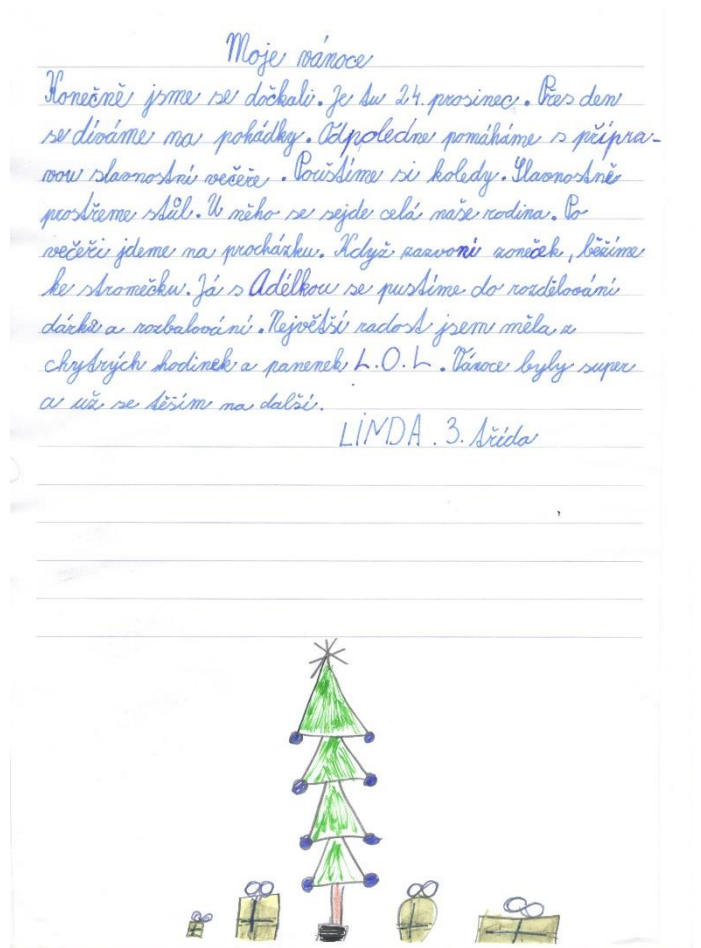 Moje vánoce
Konečně jsme se dočkali. Je tu 24. prosinec. Přes den
se díváme na pohádky. Odpoledne pomáháme s přípra-
vou slavnostní večeře. Pouštíme si koledy. Slavnostně
prostřeme stůl. U něho se sejde celá naše rodina. Po
večeři jdeme na procházku. Když zazvoní zoneček, běžíme
ke stromečku. Já s Adélkou se pustíme do rozdělování
dárků a rozbalování. Největší radost jsem měla z
chytrých hodinek a panenek L.O.L. Vánoce byly super
a už se těším na další.
LINDA. 3. třída